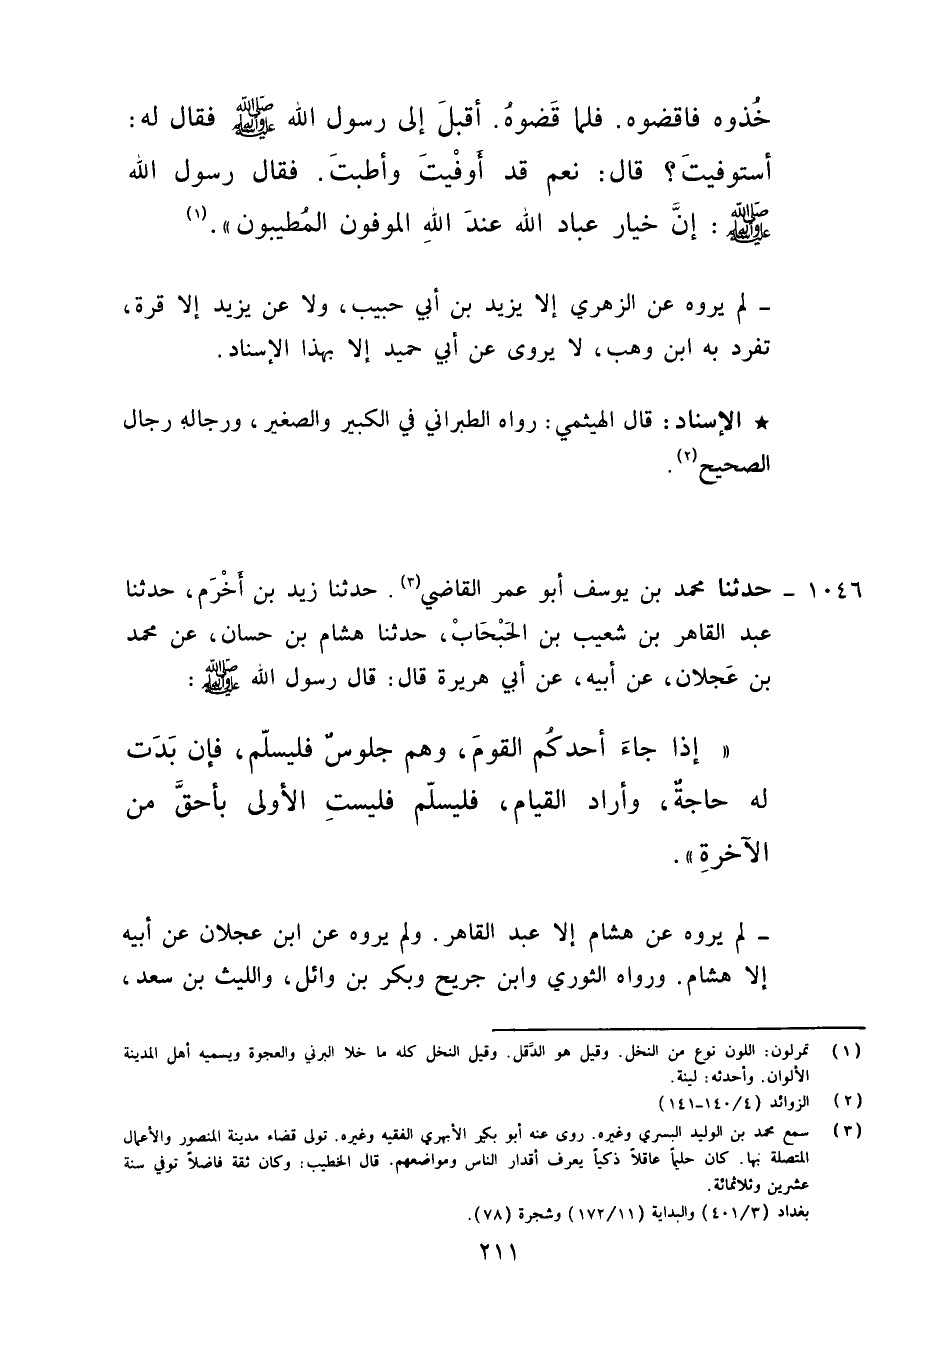 خُذوه فاقضوه. فلما قَضوهُ. أقبلَ إلى رسول الله ﷺ فقال له:
أستوفيتَ؟ قال: نعم قد أَوفْيتَ وأطبتَ. فقال رسول الله
ﷺ : إنَّ خيار عباد الله عندَ اللهِ الموفون المُطيبون». (١)
ـ لم يروه عن الزهري إلا يزيد بن أبي حبيب، ولا عن يزيد إلا قرة،
تفرد به ابن وهب، لا يروى عن أبي حميد إلا بهذا الإسناد.
★ الإسناد: قال الهيثمي: رواه الطبراني في الكبير والصغير، ورجاله رجال
الصحيح(٢).
١٠٤٦ ـ حدثنا محمد بن يوسف أبو عمر القاضي(٣). حدثنا زيد بن أَخْرَم، حدثنا
عبد القاهر بن شعيب بن الحَبْحَابْ، حدثنا هشام بن حسان، عن محمد
بن عَجلان، عن أبيه، عن أبي هريرة قال: قال رسول الله ﷺ :
« إذا جاءَ أحدكُم القومَ، وهم جلوسٌ فليسلّم، فإن بَدَت
له حاجةٌ، وأراد القيام، فليسلّم فليستِ الأولى بأحقَّ من
الآخرةِ».
ـ لم يروه عن هشام إلا عبد القاهر. ولم يروه عن ابن عجلان عن أبيه
إلا هشام. ورواه الثوري وابن جريح وبكر بن وائل، والليث بن سعد،
(١) تمرلون: اللون نوع من النخل. وقيل هو الدَّقل. وقيل النخل كله ما خلا البرني والعجوة ويسميه أهل المدينة
الألوان. وأحدثه: لينة.
(٢) الزوائد (٤/١٤٠-١٤١)
(٣) سمع محمد بن الوليد البسري وغيره. روى عنه أبو بكر الأبهري الفقيه وغيره. تولى قضاء مدينة المنصور والأعمال
المتصلة بها. كان حليماً عاقلاً ذكياً يعرف أقدار الناس ومواضعهم. قال الخطيب: وكان ثقة فاضلاً توفي سنة
عشرين وثلاثمائة.
بغداد (٤٠١/٣) والبداية (١٧٢/١١) وشجرة (٧٨).
٢١١